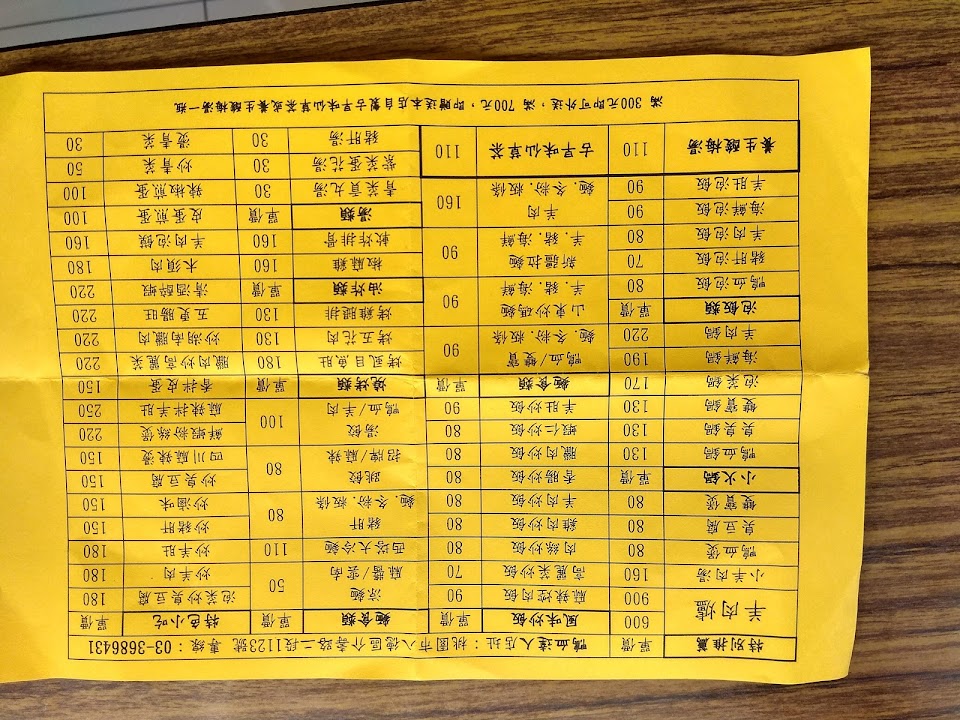 特別推薦 單價 鴨血達人店址：桃園市八德區介壽路二段1123號 專線：03-3686431
羊肉爐 600 風味炒飯 單價 麵食類 單價 特色小吃 單價
900 麻辣 肉飯 90 涼麵 50 泡菜炒臭豆腐 180
小羊肉湯 160 高麗菜炒飯 70 麻醬/雲南 炒羊肉 180
鴨血煲 80 肉絲炒飯 80 西塔大冷麵 110 炒羊肚 180
臭豆腐 80 雞肉炒飯 80 豬肝 80 炒豬肝 150
雙寶煲 80 羊肉炒飯 80 麵.冬粉.粄條 炒滷味 150
小火鍋 單價 香腸炒飯 80 跳餃 80 炒臭豆腐 150
鴨血鍋 130 臘肉炒飯 80 招牌/麻辣 四川麻辣燙 150
臭臭鍋 130 蝦仁炒飯 80 湯餃 100 鮮蝦粉絲煲 220
雙寶鍋 130 羊肚炒飯 90 鴨血/羊肉 麻辣拌羊肚 250
泡菜鍋 170 麵食類 單價 燒烤類 單價 香拌皮蛋 150
海鮮鍋 190 鴨血/雙寶 90 烤虱目魚肚 180 臘肉炒高麗菜 220
羊肉鍋 220 麵.冬粉.粄條 烤五花肉 130 炒湖南臘肉 220
泡飯類 單價 山東炒碼麵 90 烤雞腿排 130 五更腸旺 220
鴨血泡飯 80 羊.豬.海鮮 油炸類 單價 清酒醉蝦 220
豬肝泡飯 70 新疆拉麵 90 椒麻雞 160 木須肉 180
羊肉泡飯 80 羊.豬.海鮮 軟炸排骨 160 羊肉泡饃 160
海鮮泡飯 90 羊肉 160 湯類 單價 皮蛋煎蛋 100
羊肚泡飯 90 麵.冬粉.粄條 青菜貢丸湯 30 辣椒煎蛋 100
養生酸梅湯 110 古早味仙草茶 110 紫菜蛋花湯 30 炒青菜 50
豬肝湯 30 燙青菜 30
滿 300元即可外送，滿 700元，即贈送本店自製古早味仙草茶或養生酸梅湯一瓶